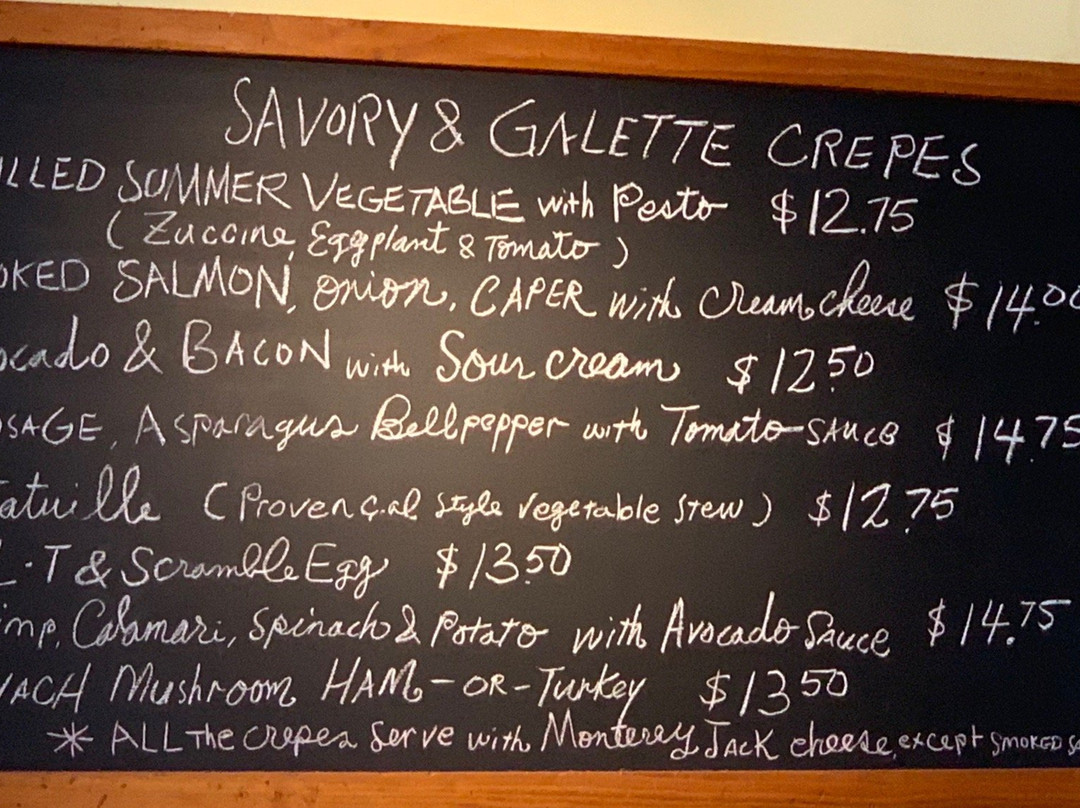 SAVORY & GALETTE CREPES
ILLED SUMMER VEGETABLE with Pesto $12.75
(Zuccine, Eggplant & Tomato)
OKED SALMON, onion, CAPER with Cream cheese $14.00
ocado & BACON with Sour cream $12.50
SAGE, Asparagus Bellpepper with Tomato-SAUCE $14.75
atuille (Provençal Style Vegetable Stew) $12.75
L-T & Scramble Egg $13.50
imp, Calamari, Spinach & Potato with Avocado Sauce $14.75
NACH Mushroom HAM-OR-Turkey $13.50
* ALL The crepes Serve with Monterey JACK cheese, except SMOKED SA